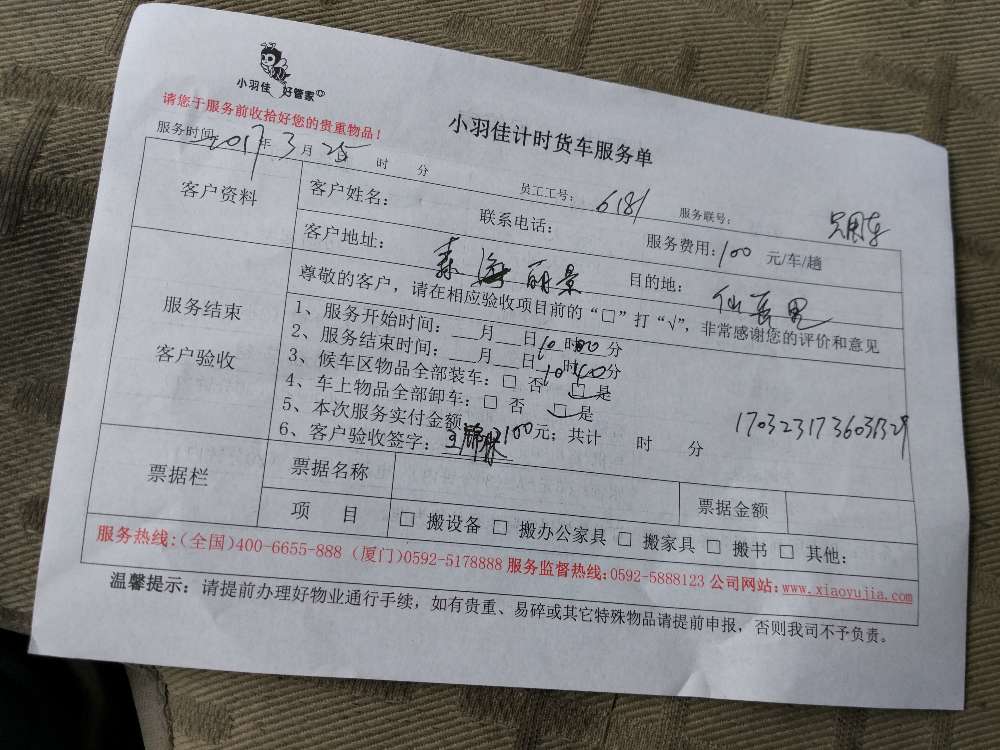 小羽佳 好管家
请您于服务前收拾好您的贵重物品！
小羽佳计时货车服务单
服务时间：2017年3月25 时 分 员工工号：6181 服务联号： 只用车
客户资料
客户姓名： 联系电话： 服务费用：100 元/车/趟
客户地址：森海丽景 目的地：仙岳里
服务结束
客户验收
尊敬的客户，请在相应验收项目前的“□”打“√”，非常感谢您的评价和意见
1、服务开始时间：___月___日10时00分
2、服务结束时间：___月___日 时 分
3、候车区物品全部装车：□ 否 □ 是
4、车上物品全部卸车：□ 否 □ 是
5、本次服务实付金额 100元；共计 时 分
6、客户验收签字：
票据栏
票据名称 票据金额
项 目 □ 搬设备 □ 搬办公家具 □ 搬家具 □ 搬书 □ 其他：
服务热线：（全国）400-6655-888（厦门）0592-5178888 服务监督热线：0592-5888123 公司网站：www.xiaoyujia.com
温馨提示：请提前办理好物业通行手续，如有贵重、易碎或其它特殊物品请提前申报，否则我司不予负责。